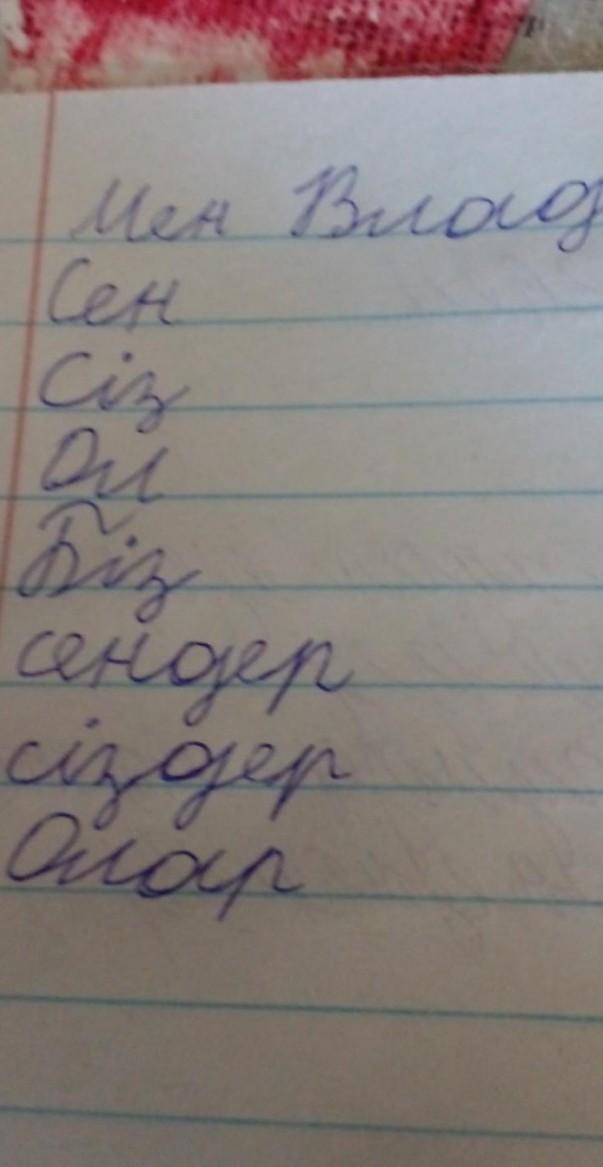 Мен Влад
Сен
Сіз
Ол
Біз
сендер
сіздер
Олар